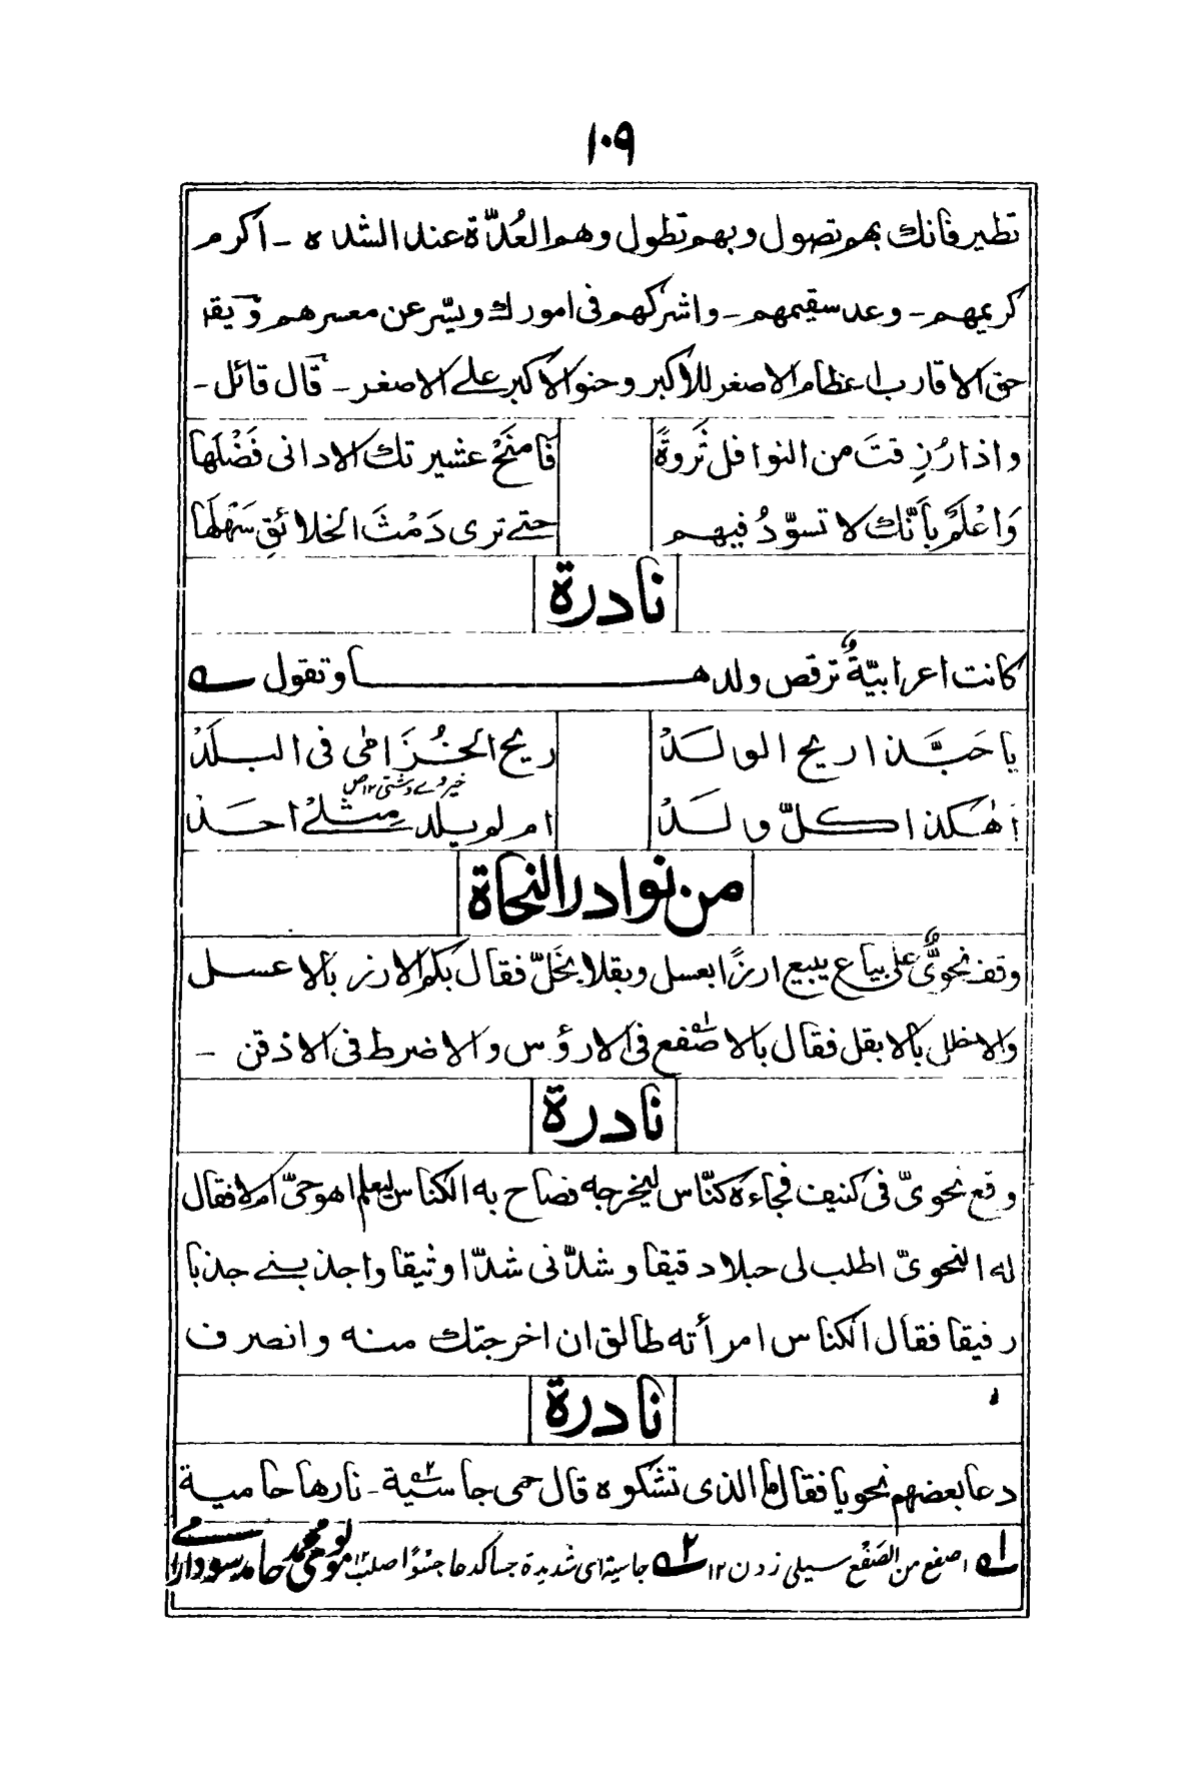 ١٠٩
تطير فانك بهم تصول وبهم تطول وهم العُدّة عند الشدة - اكرم
كريمهم - وعد سقيمهم - واشركهم فى امورك ويسّر عن معسرهم ويقا
حق الاقارب اعظام الاصغر للاكبر وحنو الاكبر على الاصغر - قال قائل -
واذا رُزِقتَ من النوافل ثَروةً فامنَحْ عشيرتك الادانى فَضْلَها
وَاعْلَمْ بأَنّك لا تسوّدُ فيهم حتے ترى دَمْثَ الخلائقِ سَهْلَها
نادرة
كانت اعرابيّةٌ ترقص ولدها وتقول
يا حَبَّذا ريح الولَدْ ريح الخُزَامى فى البلَدْ
أهكذا كلّ ولَدْ ام لم يلد مِثلےْ احَدْ
من نوادر النحاة
وقف نحوىٌّ على بياع يبيع ارزًا بعسل وبقلا بخَلّ فقال بكم الارز بالاعسل
والاخلل بالابقل فقال بالاصفع فى الارؤس والاضرط فى الاذقن -
نادرة
وقع نحوىّ فى كنيف فجاءه كنّاس ليخرجه فصاح به الكناس ليعلم اهو حىّ ام لا فقال
له النحوىّ اطلب لى حبلا دقيقا وشدّنى شدّا وثيقا واجذبنے جذبا
رفيقا فقال الكناس امرأته طالق ان اخرجتك منه وانصرف
نادرة
دعا بعضهم نحويا فقال ما الذى تشكوه قال حمى جاسية - نارها حامية
١ اصفع من الصَفْع سيلى زدن ١٢ ٢ جاسية اى شديدة جسا كدعا جسُوًّا صلب ١٢ مولوى محمد حامد